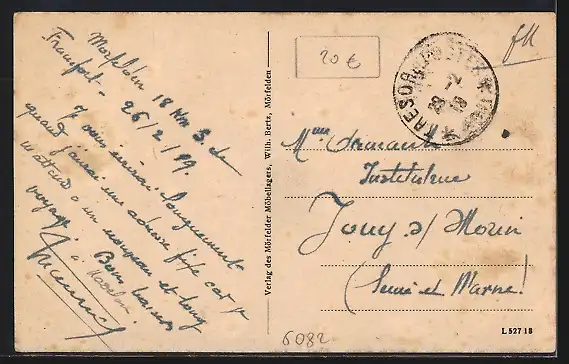 Morfelden 18 Km S. de
Francfort - 26/2/19.
Je vous écrirai longuement
quand j'aurai une adresse fixe car je
m'attend à un nouveau et long
voyage
Bons baisers
Verlag des Mörfelder Möbellagers, Wilh. Bertz, Mörfelden
20 €
TRESOR ET POSTES
28 - 2
19
Mme
Institutrice
Jouy s/ Morin
(Seine et Marne)
L 527 18
6082